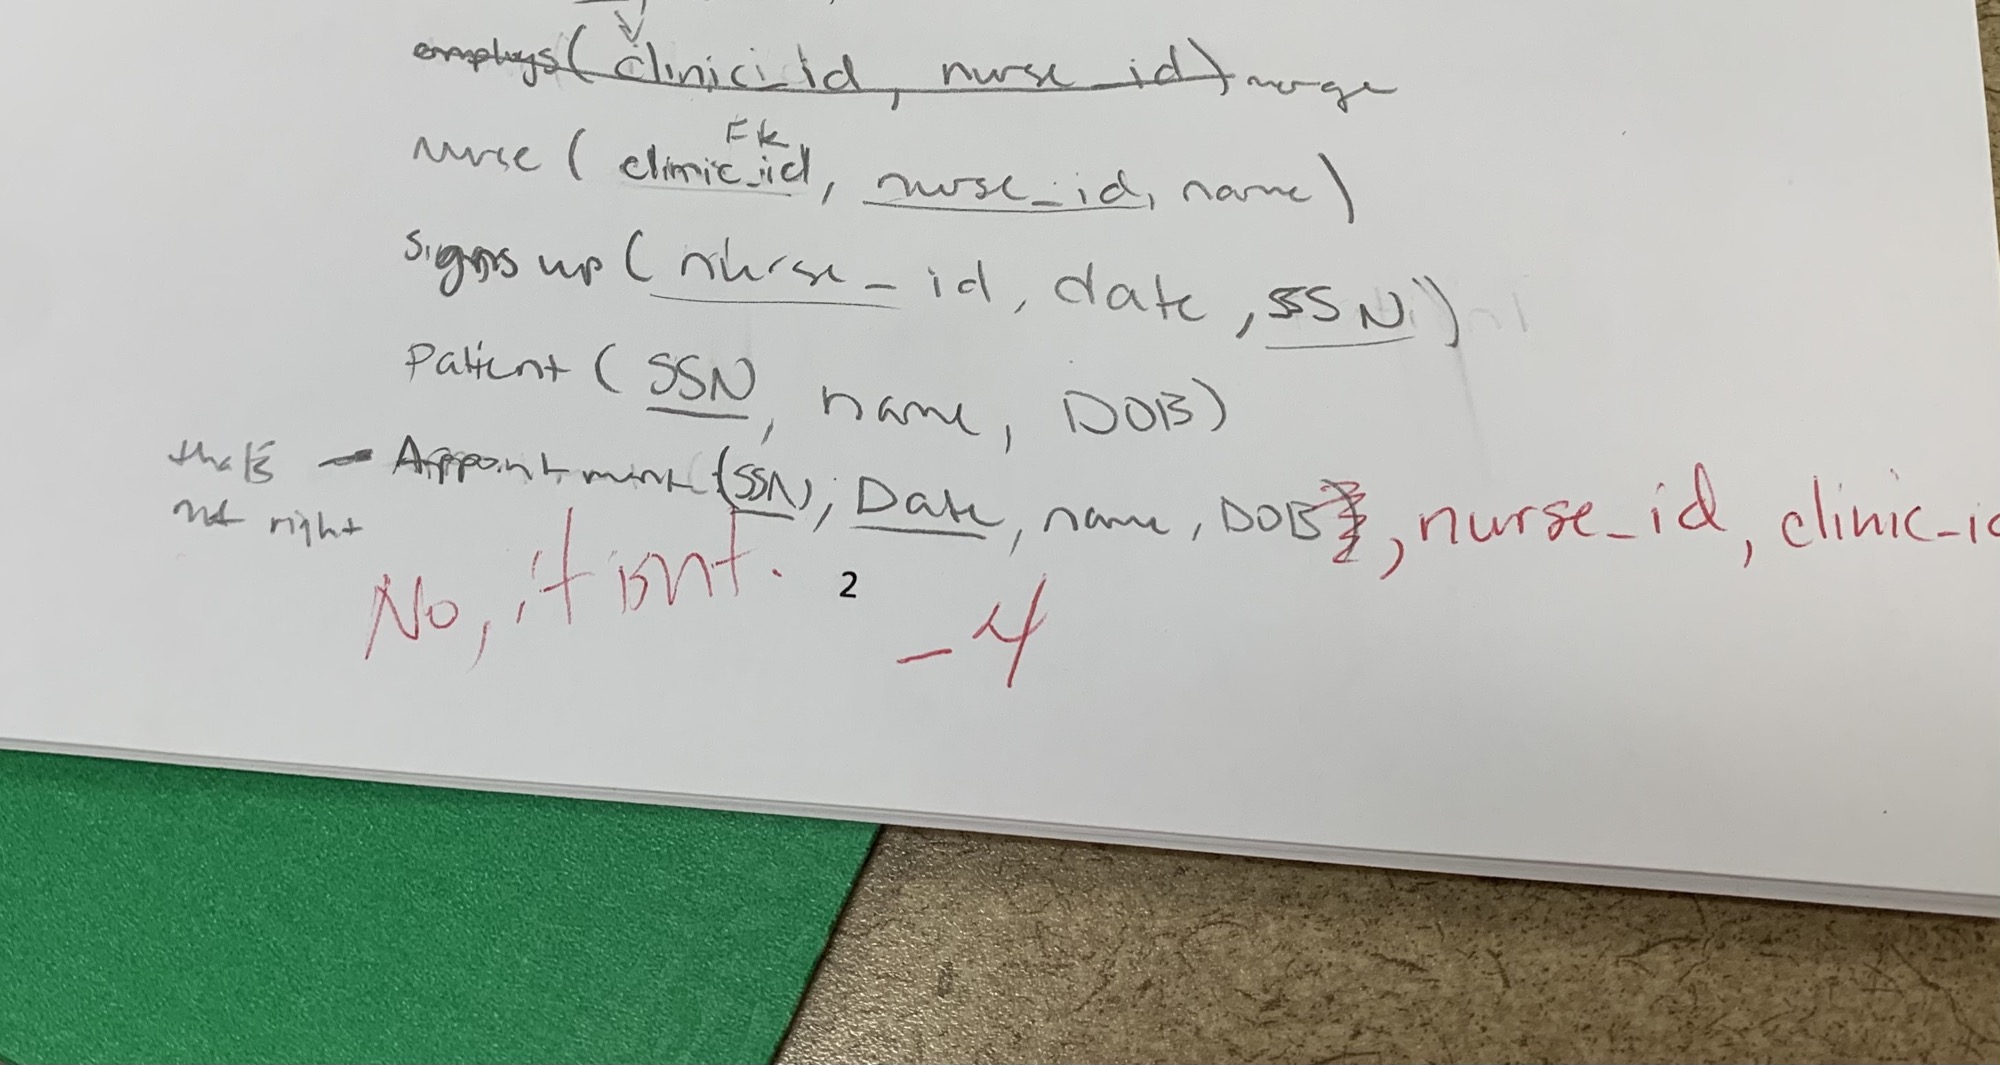 employs(clinic_id, nurse_id) merge
FK
nurse (clinic_id, nurse_id, name)
signs up (nurse_id, date, SSN)
Patient (SSN, name, DOB)
that's — Appointment (SSN, Date, name, DOB, nurse_id, clinic_id
not right
No, it isnt.
2
-4